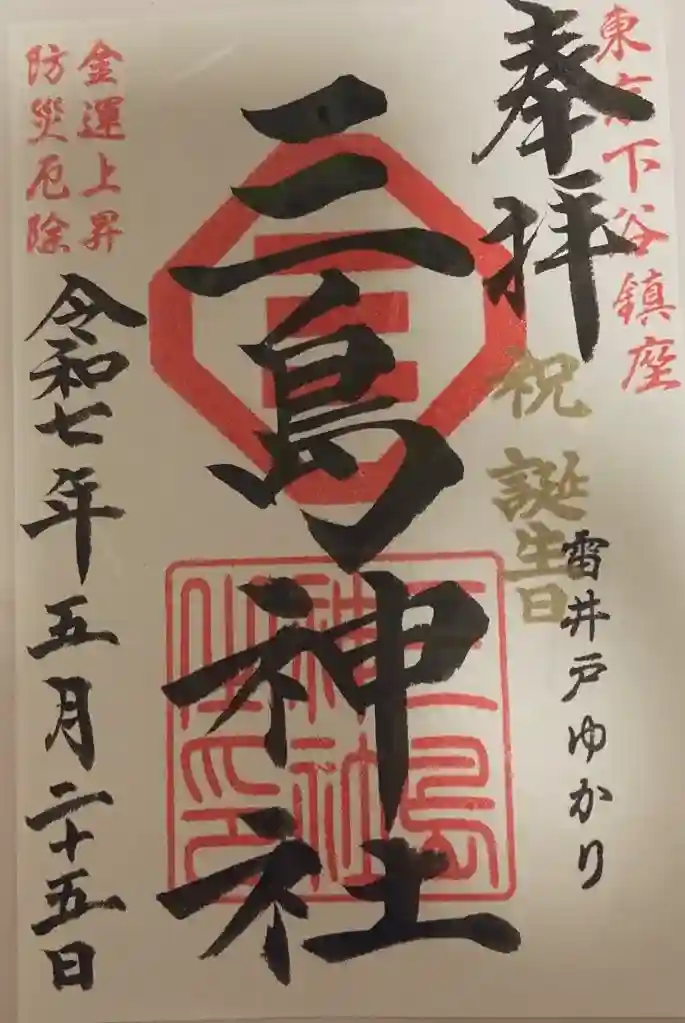 東京下谷鎮座
奉拝
祝 誕生日
雷井戸ゆかり
三島神社
三島神社之印
金運上昇
防災厄除
令和七年五月二十五日